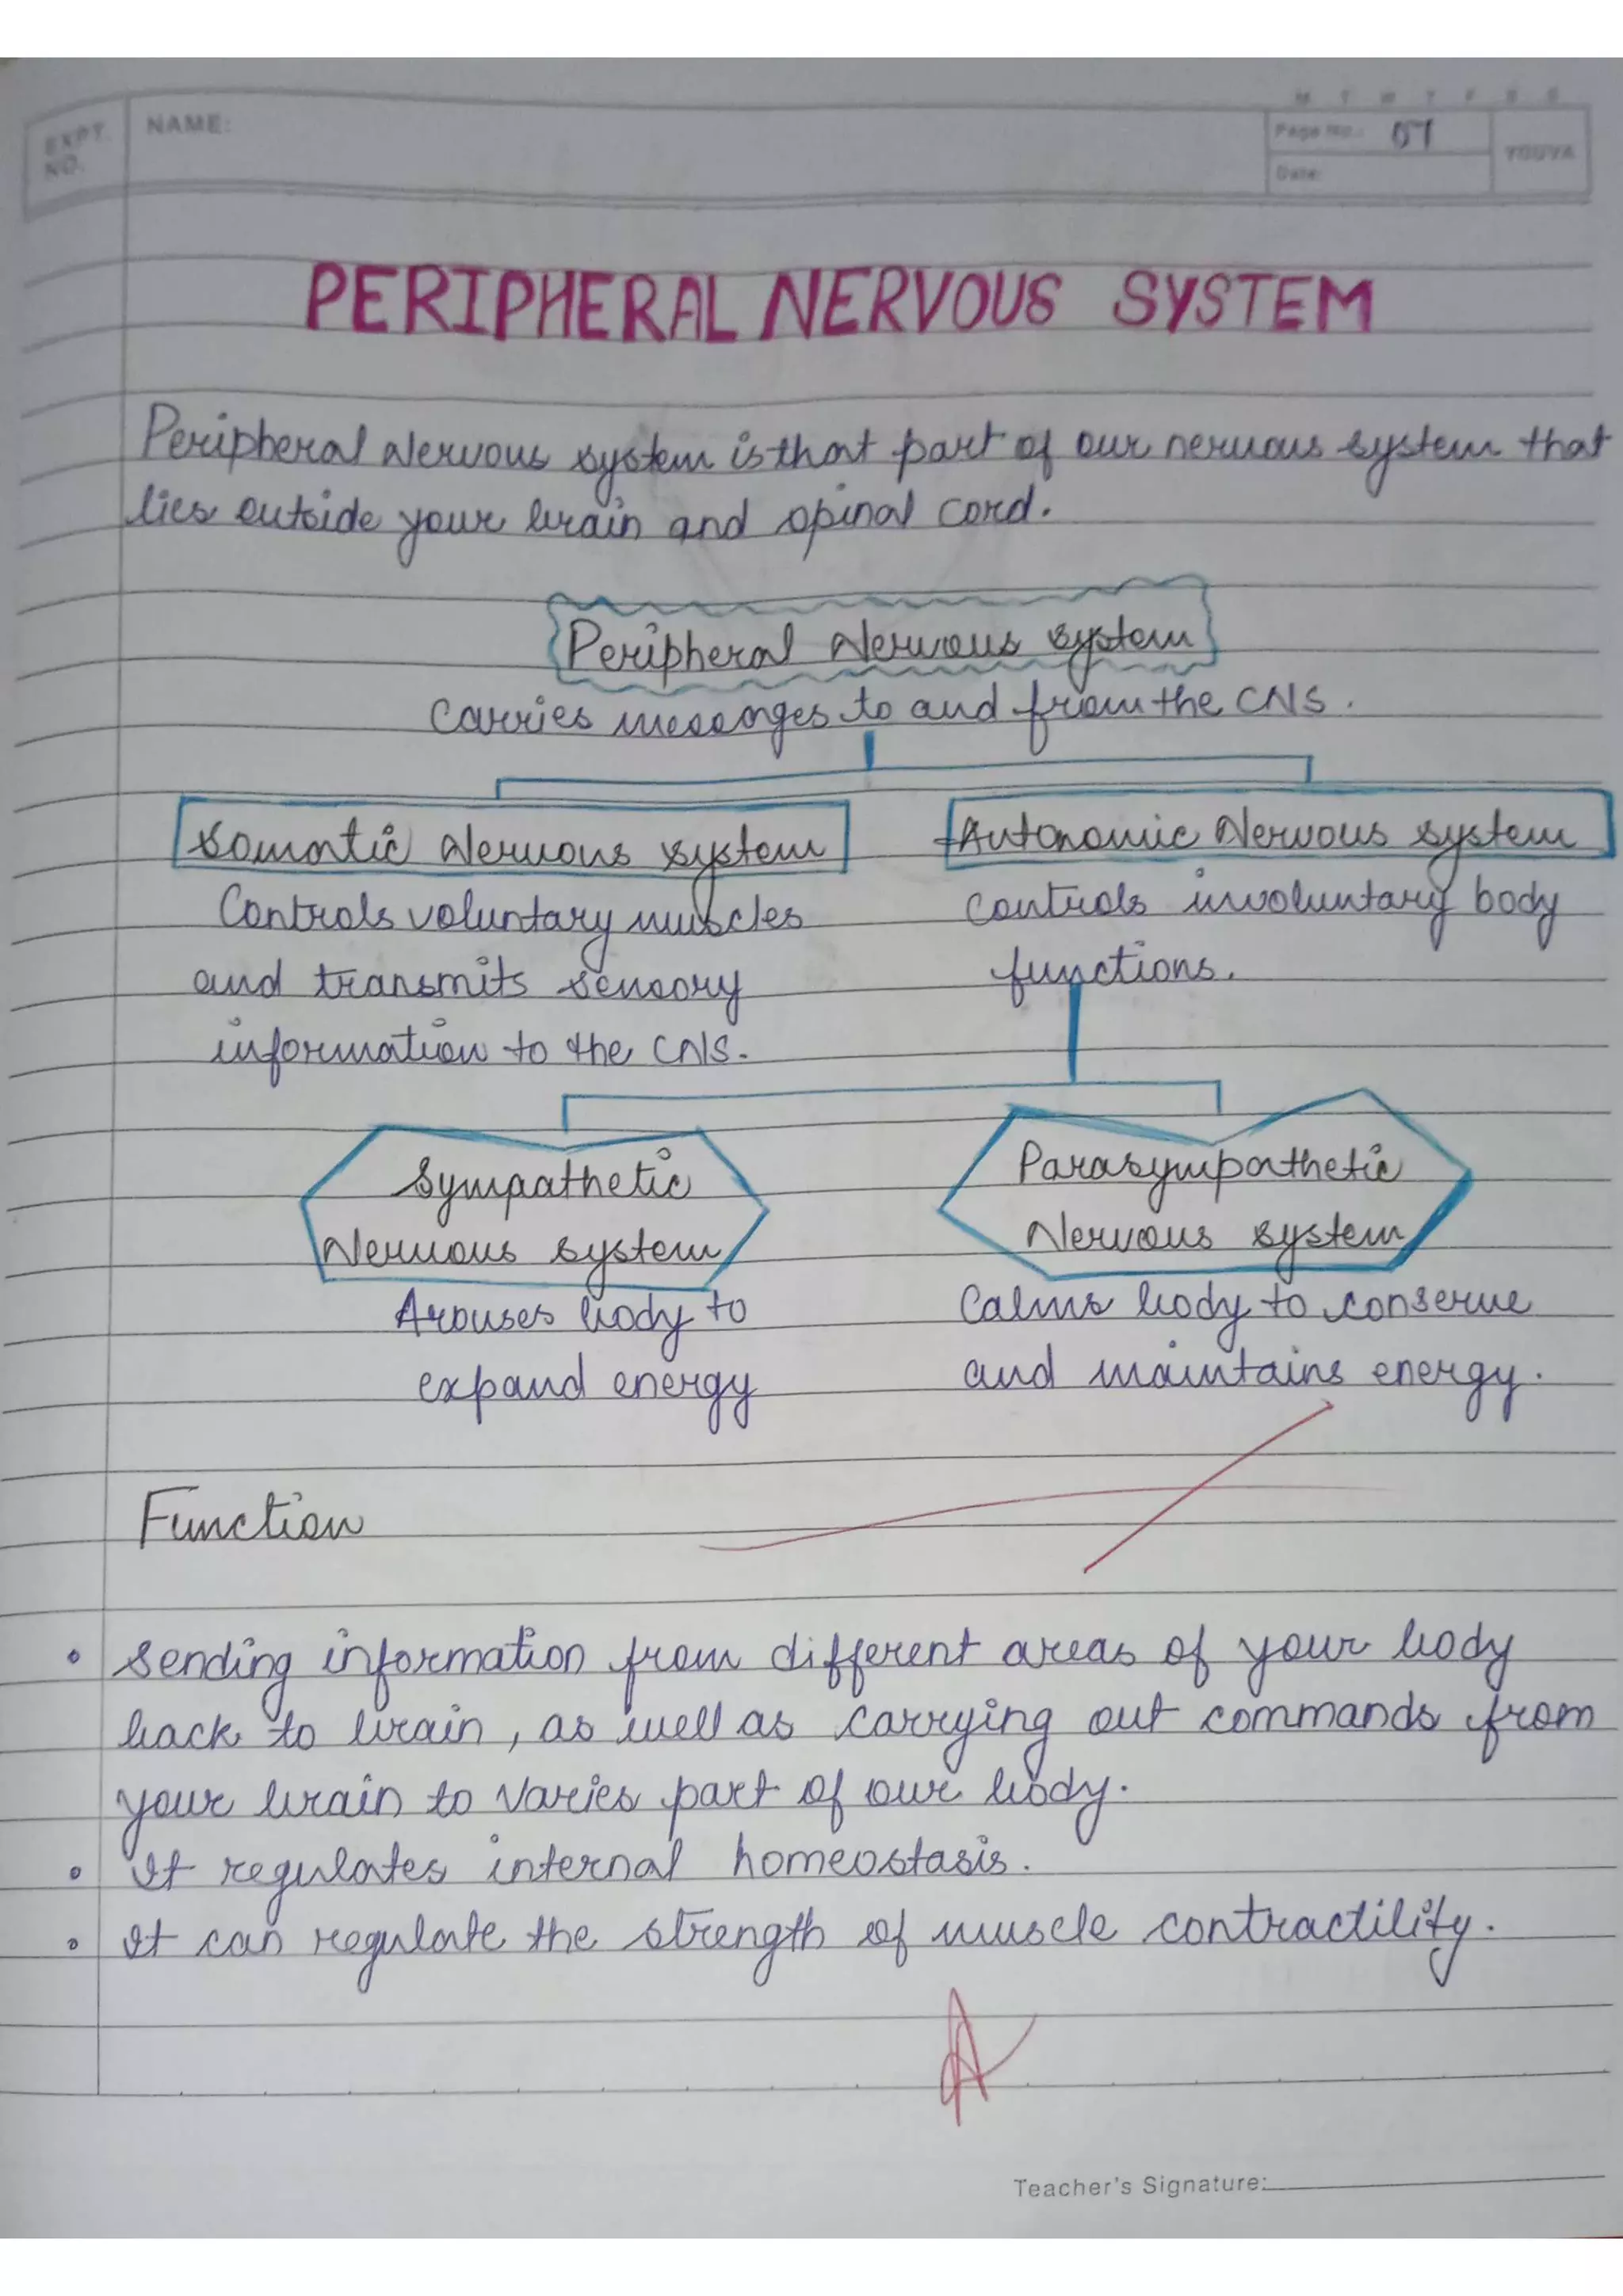 M T W T F S S
EXPT. NO.
NAME:
Page No.: 07
Date:
YOUVA
PERIPHERAL NERVOUS SYSTEM
Peripheral Nervous system is that part of our nervous system that
lies outside your brain and spinal cord.
Peripheral Nervous system
Carries messages to and from the CNS.
Somatic Nervous system
Controls voluntary muscles
and transmits sensory
information to the CNS.
Autonomic Nervous system
Controls involuntary body
functions.
Sympathetic
Nervous system
Arouses body to
expand energy
Parasympathetic
Nervous system
Calms body to conserve
and maintains energy.
Function
• Sending information from different areas of your body
back to brain, as well as carrying out commands from
your brain to varies part of our body.
• It regulates internal homeostasis.
• It can regulate the strength of muscle contractility.
Teacher's Signature: